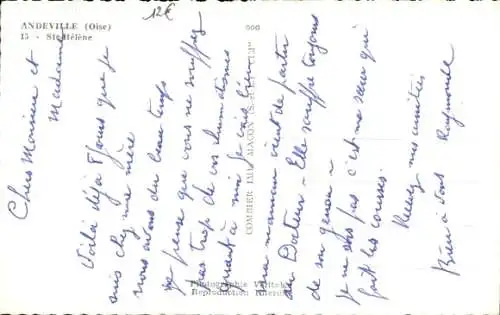 ANDEVILLE (Oise)
15 - Ste Hélène
12€
Chers Monsieur et
Madame
Voilà déjà 8 jours que je
suis chez ma mère
nous avons du beau temps
je pense que vous ne souffrez
pas trop de vos rhumatismes
quant à moi je vais bien
ma maman vient de partir
au Docteur - Elle souffre toujours
de son genou -
je ne sors pas c'est ma sœur qui
fait les courses.
Recevez mes amitiés
Bien à vous Raymonde
COMBIER IMP. MACON (S.-ET-L.) "CIM"
Photographie Véritable
Reproduction Interdite